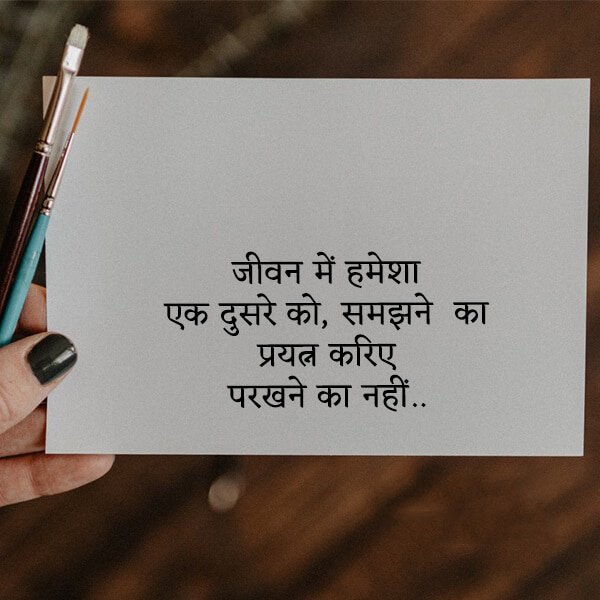 जीवन में हमेशा
एक दुसरे को, समझने का
प्रयत्न करिए
परखने का नहीं..